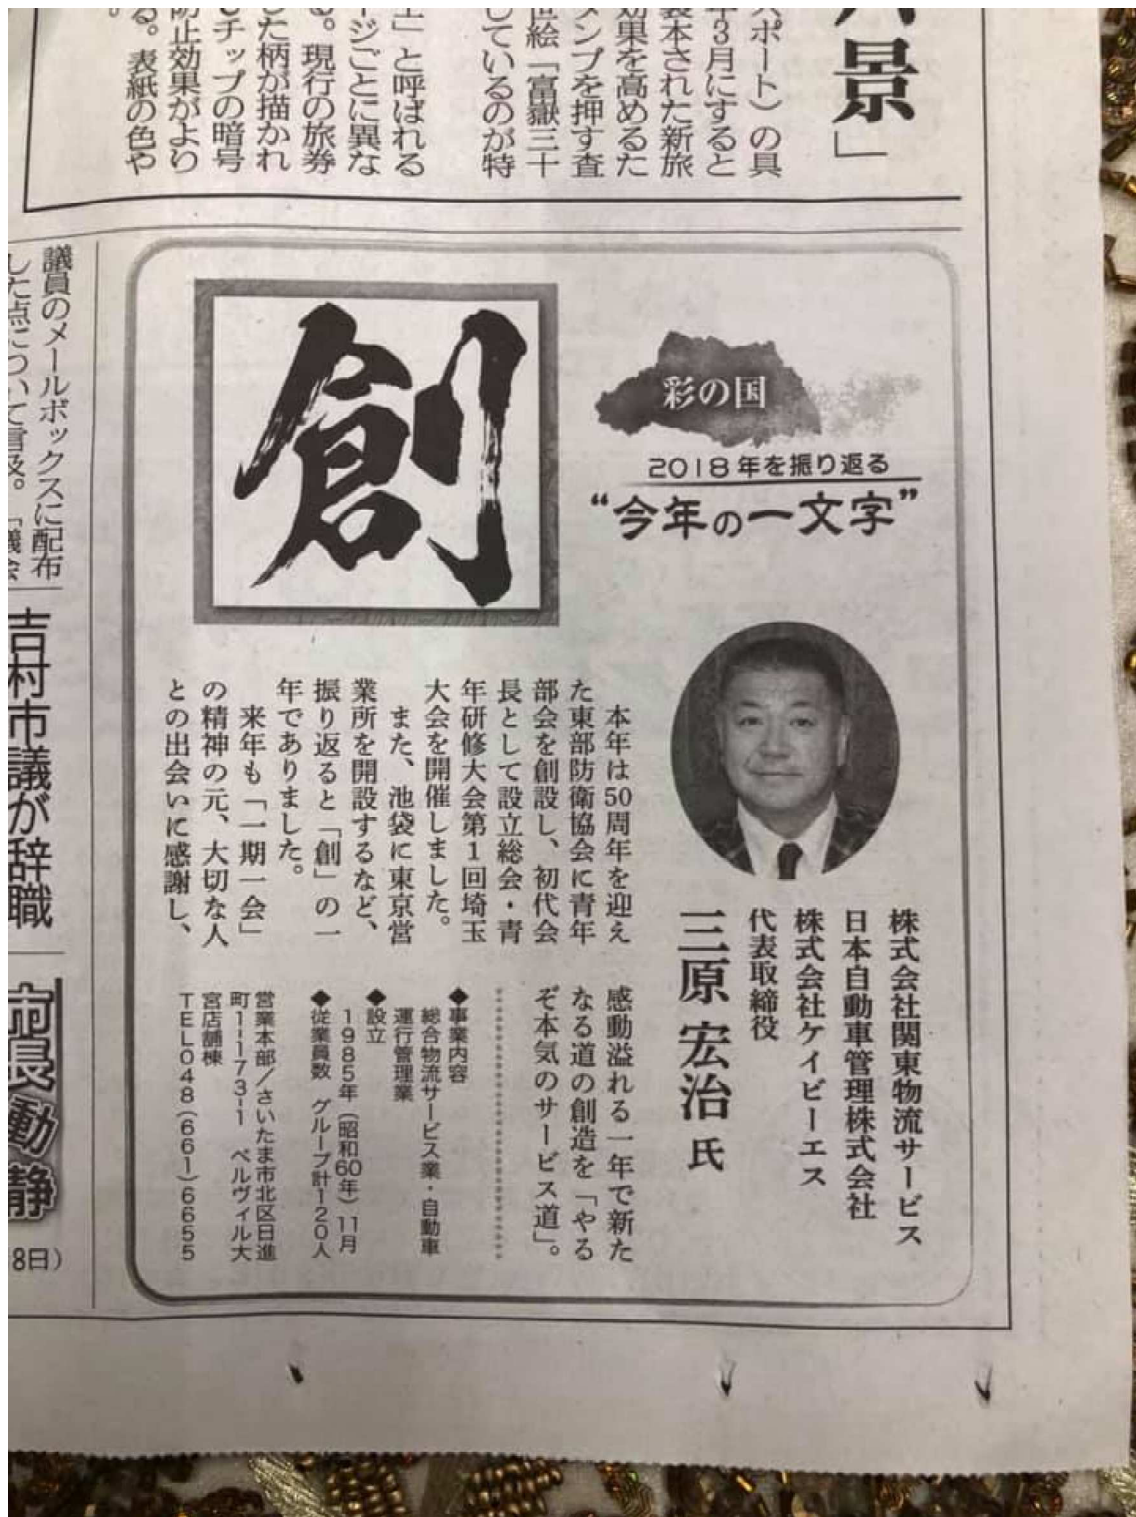 八景」
スポート）の具
年3月にすると
製本された新旅
効果を高めるた
ンプを押す査
世絵「富嶽三十
しているのが特
」と呼ばれる
ージごとに異な
る。現行の旅券
した柄が描かれ
Cチップの暗号
防止効果がより
る。表紙の色や
彩の国
2018年を振り返る
“今年の一文字”
創
株式会社関東物流サービス
日本自動車管理株式会社
株式会社ケイビーエス
代表取締役
三原 宏治 氏
本年は50周年を迎え
た東部防衛協会に青年
部会を創設し、初代会
長として設立総会・青
年研修大会第1回埼玉
大会を開催しました。
また、池袋に東京営
業所を開設するなど、
振り返ると「創」の一
年でありました。
来年も「一期一会」
の精神の元、大切な人
との出会いに感謝し、
感動溢れる一年で新た
なる道の創造を「やる
ぞ本気のサービス道」。
◆事業内容
総合物流サービス業・自動車
運行管理業
◆設立
1985年（昭和60年）11月
◆従業員数 グループ計120人
営業本部/さいたま市北区日進
町1-173-1 ベルヴィル大
宮店舗棟
TEL048(661)6655
議員のメールボックスに配布
した点について言及。「議会
吉村市議が辞職
市長動静
8日）